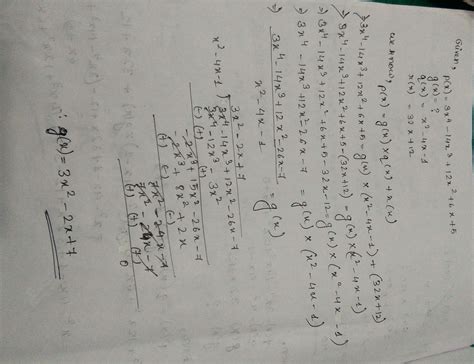 Given, p(x) = 3x⁴-14x³+12x²+6x+5
g(x) = ?
q(x) = x²-4x-1
r(x) = 32x+12
we know, p(x) = g(x) × q(x) + r(x)
⇒ 3x⁴-14x³+12x²+6x+5 = g(x) × (x²-4x-1) + (32x+12)
⇒ 3x⁴-14x³+12x²+6x+5-(32x+12) = g(x) × (x²-4x-1)
⇒ 3x⁴-14x³+12x²+6x+5-32x-12 = g(x) × (x²-4x-1)
⇒ 3x⁴-14x³+12x²-26x-7 = g(x) × (x²-4x-1)
⇒ 3x⁴-14x³+12x²-26x-7 = g(x)
x²-4x-1
3x²-2x+7
x²-4x-1 ) 3x⁴-14x³+12x²-26x-7
3x⁴-12x³-3x²
(-) (+) (+)
-2x³+15x²-26x-7
-2x³+8x²+2x
(+) (-) (-)
7x²-28x-7
(-) (+) (+)
0
∴ g(x) = 3x²-2x+7